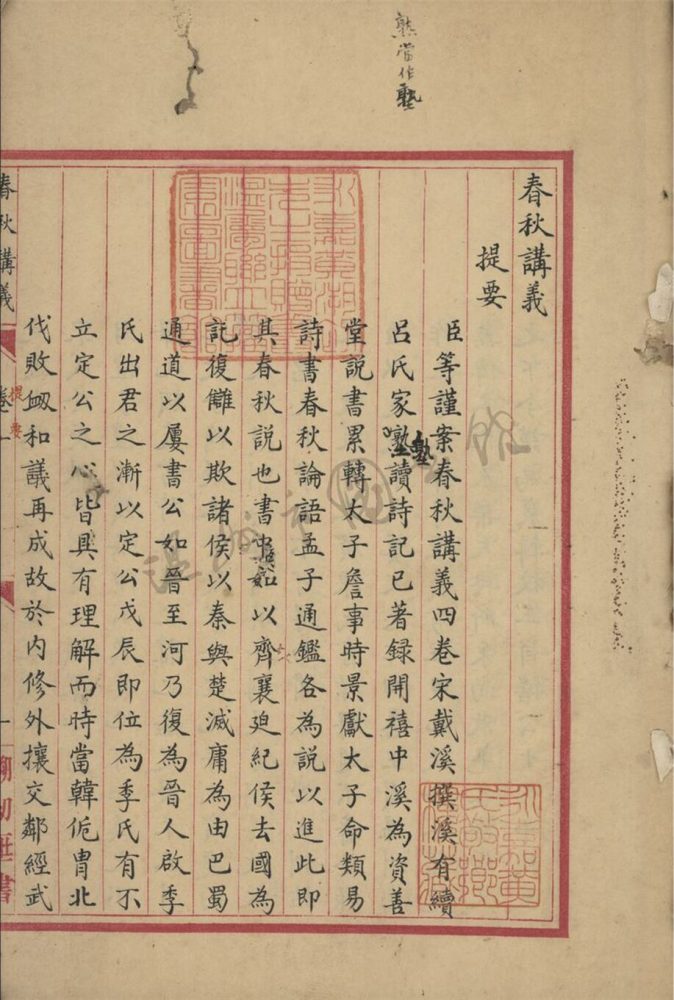 熟當作塾
春秋講義
提要
臣等謹案春秋講義四卷宋戴溪撰溪有續
呂氏家塾讀詩記已著録開禧中溪為資善
塾
堂説書累轉太子詹事時景獻太子命類易
詩書春秋論語孟子通鑑各為説以進此即
其春秋説也書中如以齊襄迫紀侯去國為
託復讎以欺諸侯以秦與楚滅庸為由巴蜀
通道以屢書公如晉至河乃復為晉人啟季
氏出君之漸以定公戊辰即位為季氏有不
立定公之心皆具有理解而時當韓侂胄北
伐敗衂和議再成故於内修外攘交鄰經武
春秋講義
提要
一
温州市图书馆